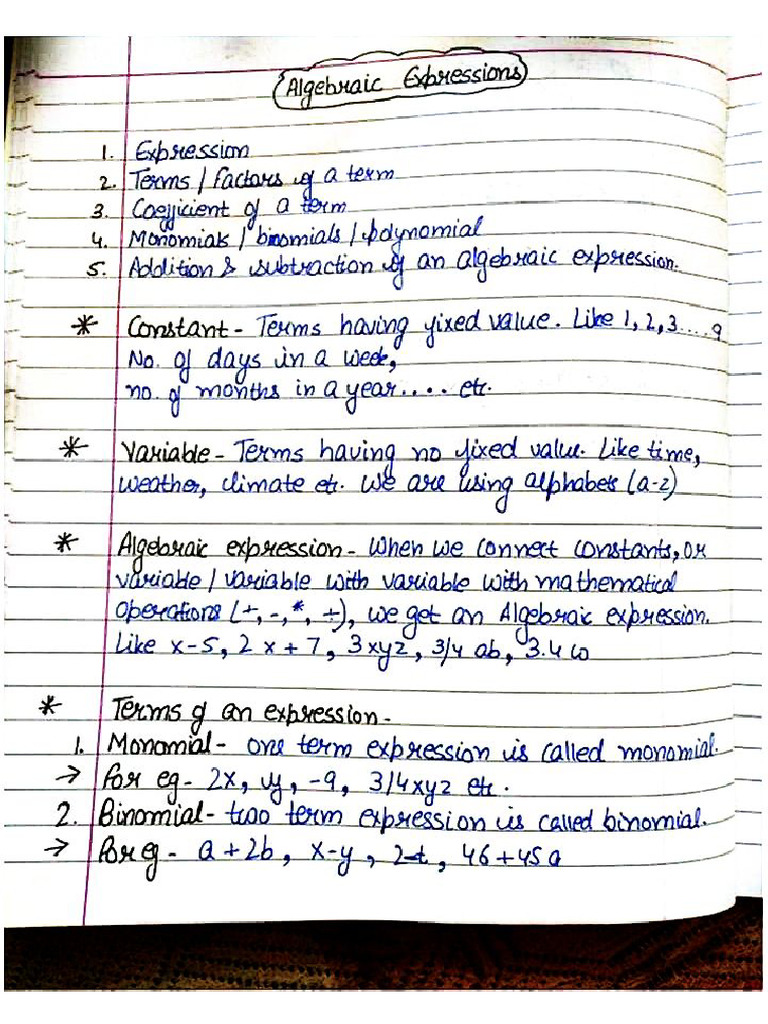 Algebraic Expressions
1. Expression
2. Terms / Factors of a term
3. Coefficient of a term
4. Monomials / binomials / polynomial
5. Addition & subtraction of an algebraic expression.
* Constant - Terms having fixed value. Like 1, 2, 3....9
No. of days in a week,
no. of months in a year.... etc.
* Variable - Terms having no fixed value. Like time,
weather, climate etc. We are using alphabets (a-z)
* Algebraic expression - When we connect constants, or
variable / variable with variable with mathematical
Operations (+, -, *, ÷), we get an Algebraic expression.
Like x-5, 2x+7, 3xyz, 3/4 ab, 3.4 w
* Terms of an expression -
1. Monomial - one term expression is called monomial.
→ For eg - 2x, y, -9, 3/4xyz etc.
2. Binomial - two term expression is called binomial.
→ For eg - a+2b, x-y, 2-t, 46+45a